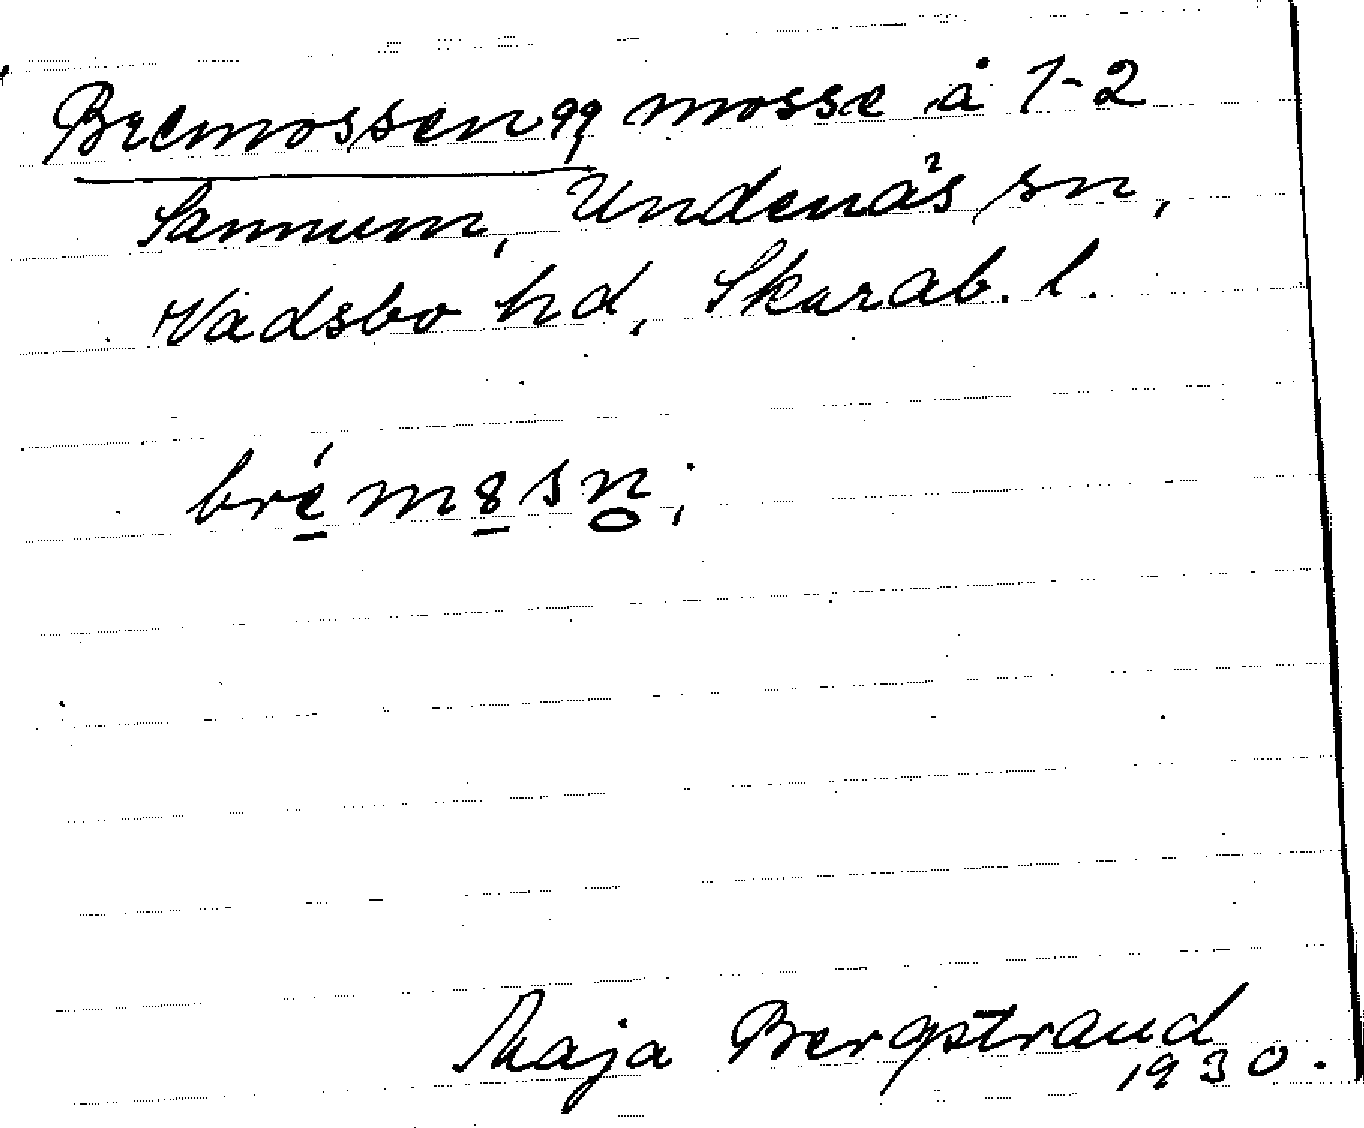 Bremossen, mosse å 1-2
Sannum, Undenäs sn,
Vadsbo hd, Skarab. l.
bre̱m8̱sn̥;
Maja Bergstrand
1930.